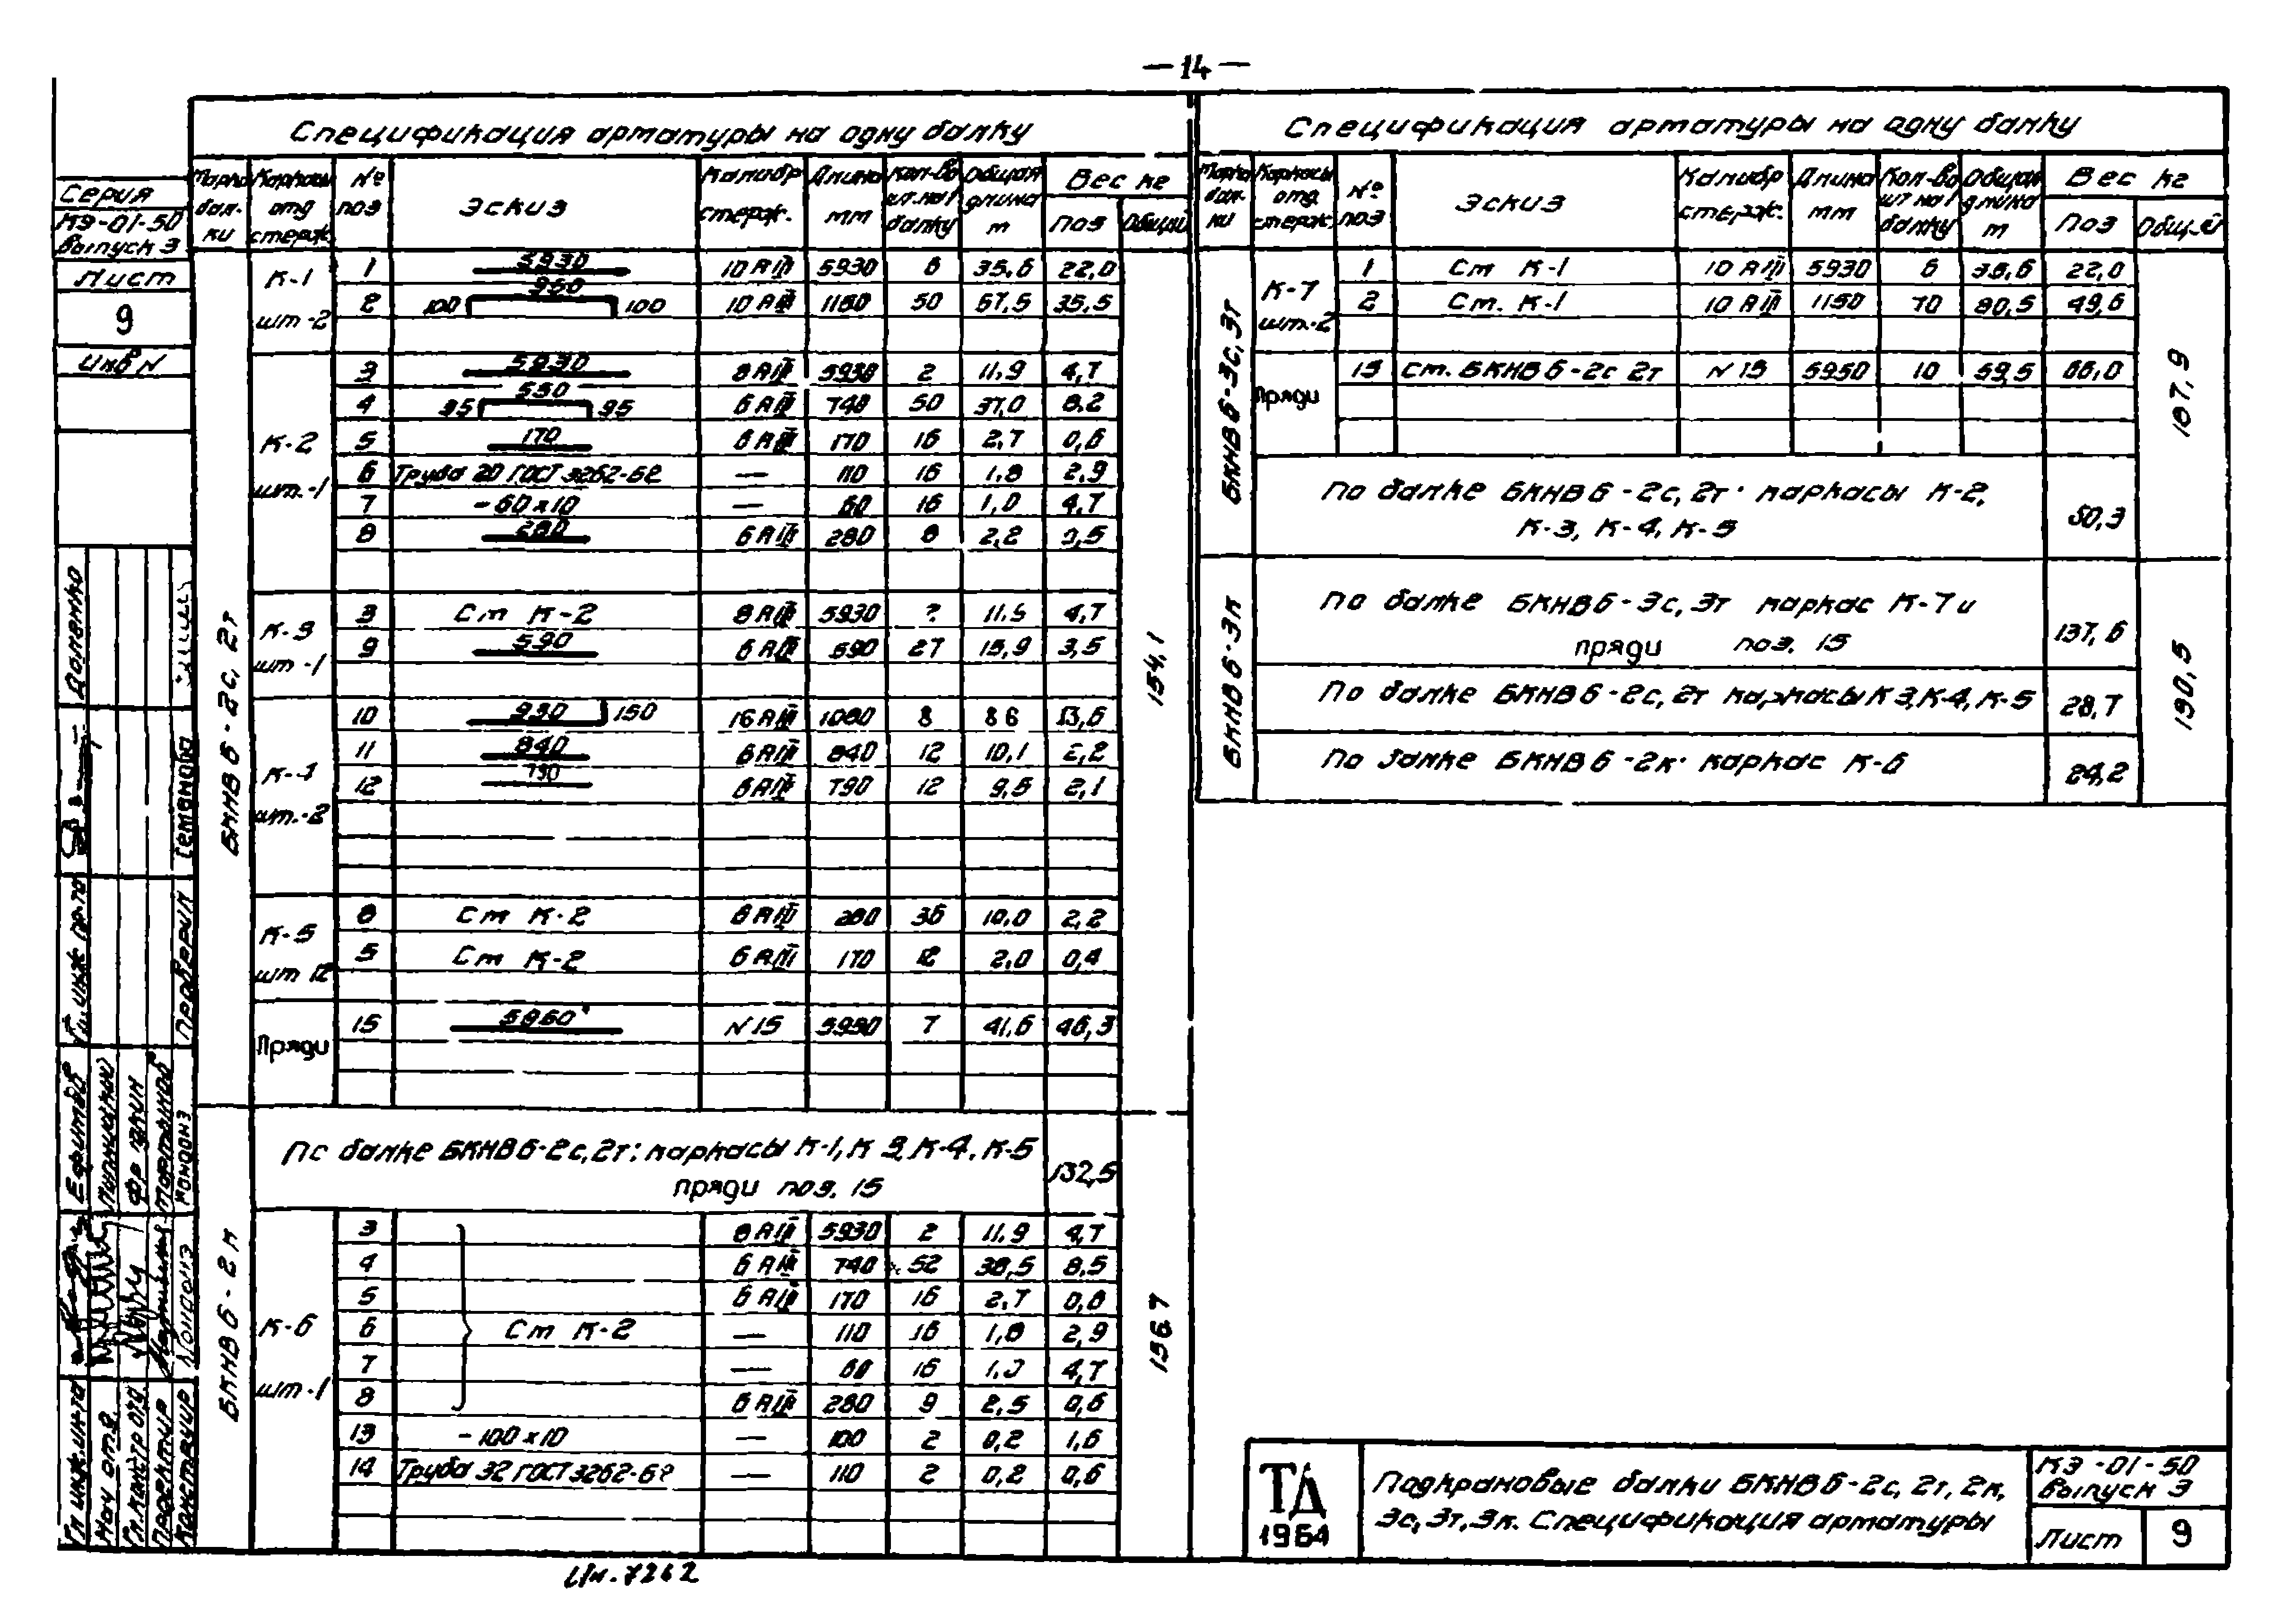 — 14 —
Серия
КЭ-01-50
выпуск 3
Лист
9
Инв N
Спецификация арматуры на одну балку
Марка балки | Каркасы отд стерж. | № поз | Эскиз | Калибр стерж. | Длина мм | Кол-во шт. на 1 балку | Общая длина м | Вес кг Поз | Общий
БКНВ 6-2с, 2т
К-1 шт-2
1 5930 10 АIII 5930 6 35,6 22,0
2 100 950 100 10 АIII 1150 50 57,5 35,5
К-2 шт.-1
3 5930 8 АIII 5930 2 11,9 4,7
4 95 550 95 6 АIII 740 50 37,0 8,2
5 170 6 АIII 170 16 2,7 0,6
6 Труба 20 ГОСТ 3262-62 — 110 16 1,8 2,9
7 - 60 х 10 — 60 16 1,0 4,7
8 280 6 АIII 280 8 2,2 0,5
К-3 шт-1
3 Ст К-2 8 АIII 5930 11,9 4,7
9 590 6 АIII 590 27 15,9 3,5
К-4 шт.-2
10 930 150 16 АIII 1080 8 8 6 13,6
11 840 6 АIII 840 12 10,1 2,2
12 790 6 АIII 790 12 9,5 2,1
К-5 шт 12
8 Ст К-2 6 АIII 280 36 10,0 2,2
5 Ст К-2 6 АIII 170 12 2,0 0,4
Пряди
15 5950 N 15 5950 7 41,6 46,3
154,1
БКНВ 6-2к
По балке БКНВ 6-2с, 2т: каркасы К-1, К 3, К-4, К-5
пряди поз. 15
132,5
К-6 шт-1
3 8 АIII 5930 2 11,9 4,7
4 6 АIII 740 52 38,5 8,5
5 6 АIII 170 16 2,7 0,6
6 Ст К-2 — 110 16 1,8 2,9
7 — 60 16 1,0 4,7
8 6 АIII 280 9 2,5 0,6
13 - 100 х 10 — 100 2 0,2 1,6
14 Труба 32 ГОСТ 3262-62 — 110 2 0,2 0,6
156 7
Спецификация арматуры на одну балку
Марка балки | Каркасы отд. стерж. | № поз | Эскиз | Калибр стерж. | Длина мм | Кол-во шт на 1 балку | Общая длина м | Вес кг Поз | Общей
БКНВ 6-3с, 3т
К-7 шт.-2
1 Ст К-1 10 АIII 5930 6 35,6 22,0
2 Ст. К-1 10 АIII 1150 70 80,5 49,6
Пряди
15 Ст. БКНВ 6-2с 2т N 15 5950 10 59,5 66,0
По балке БКНВ 6-2с, 2т· каркасы К-2,
К-3, К-4, К-5
50,3
187,9
БКНВ 6-3к
По балке БКНВ 6-3с, 3т каркас К-7 и
пряди поз. 15
137,6
По балке БКНВ 6-2с, 2т каркасы К 3, К-4, К-5
28,7
По балке БКНВ 6-2к· каркас К-6
24,2
190,5
Гл инж. ин-та
Нач отд.
Гл. констр отд
Проектир
Конструир
Ефимов
Фрадкин
Мартынов
Гл. инж пр-та
Проверил
Семенова
ТД
1964
Подкрановые балки БКНВ 6-2с, 2т, 2к,
3с, 3т, 3к. Спецификация арматуры
КЭ-01-50
Выпуск 3
Лист
9
7262